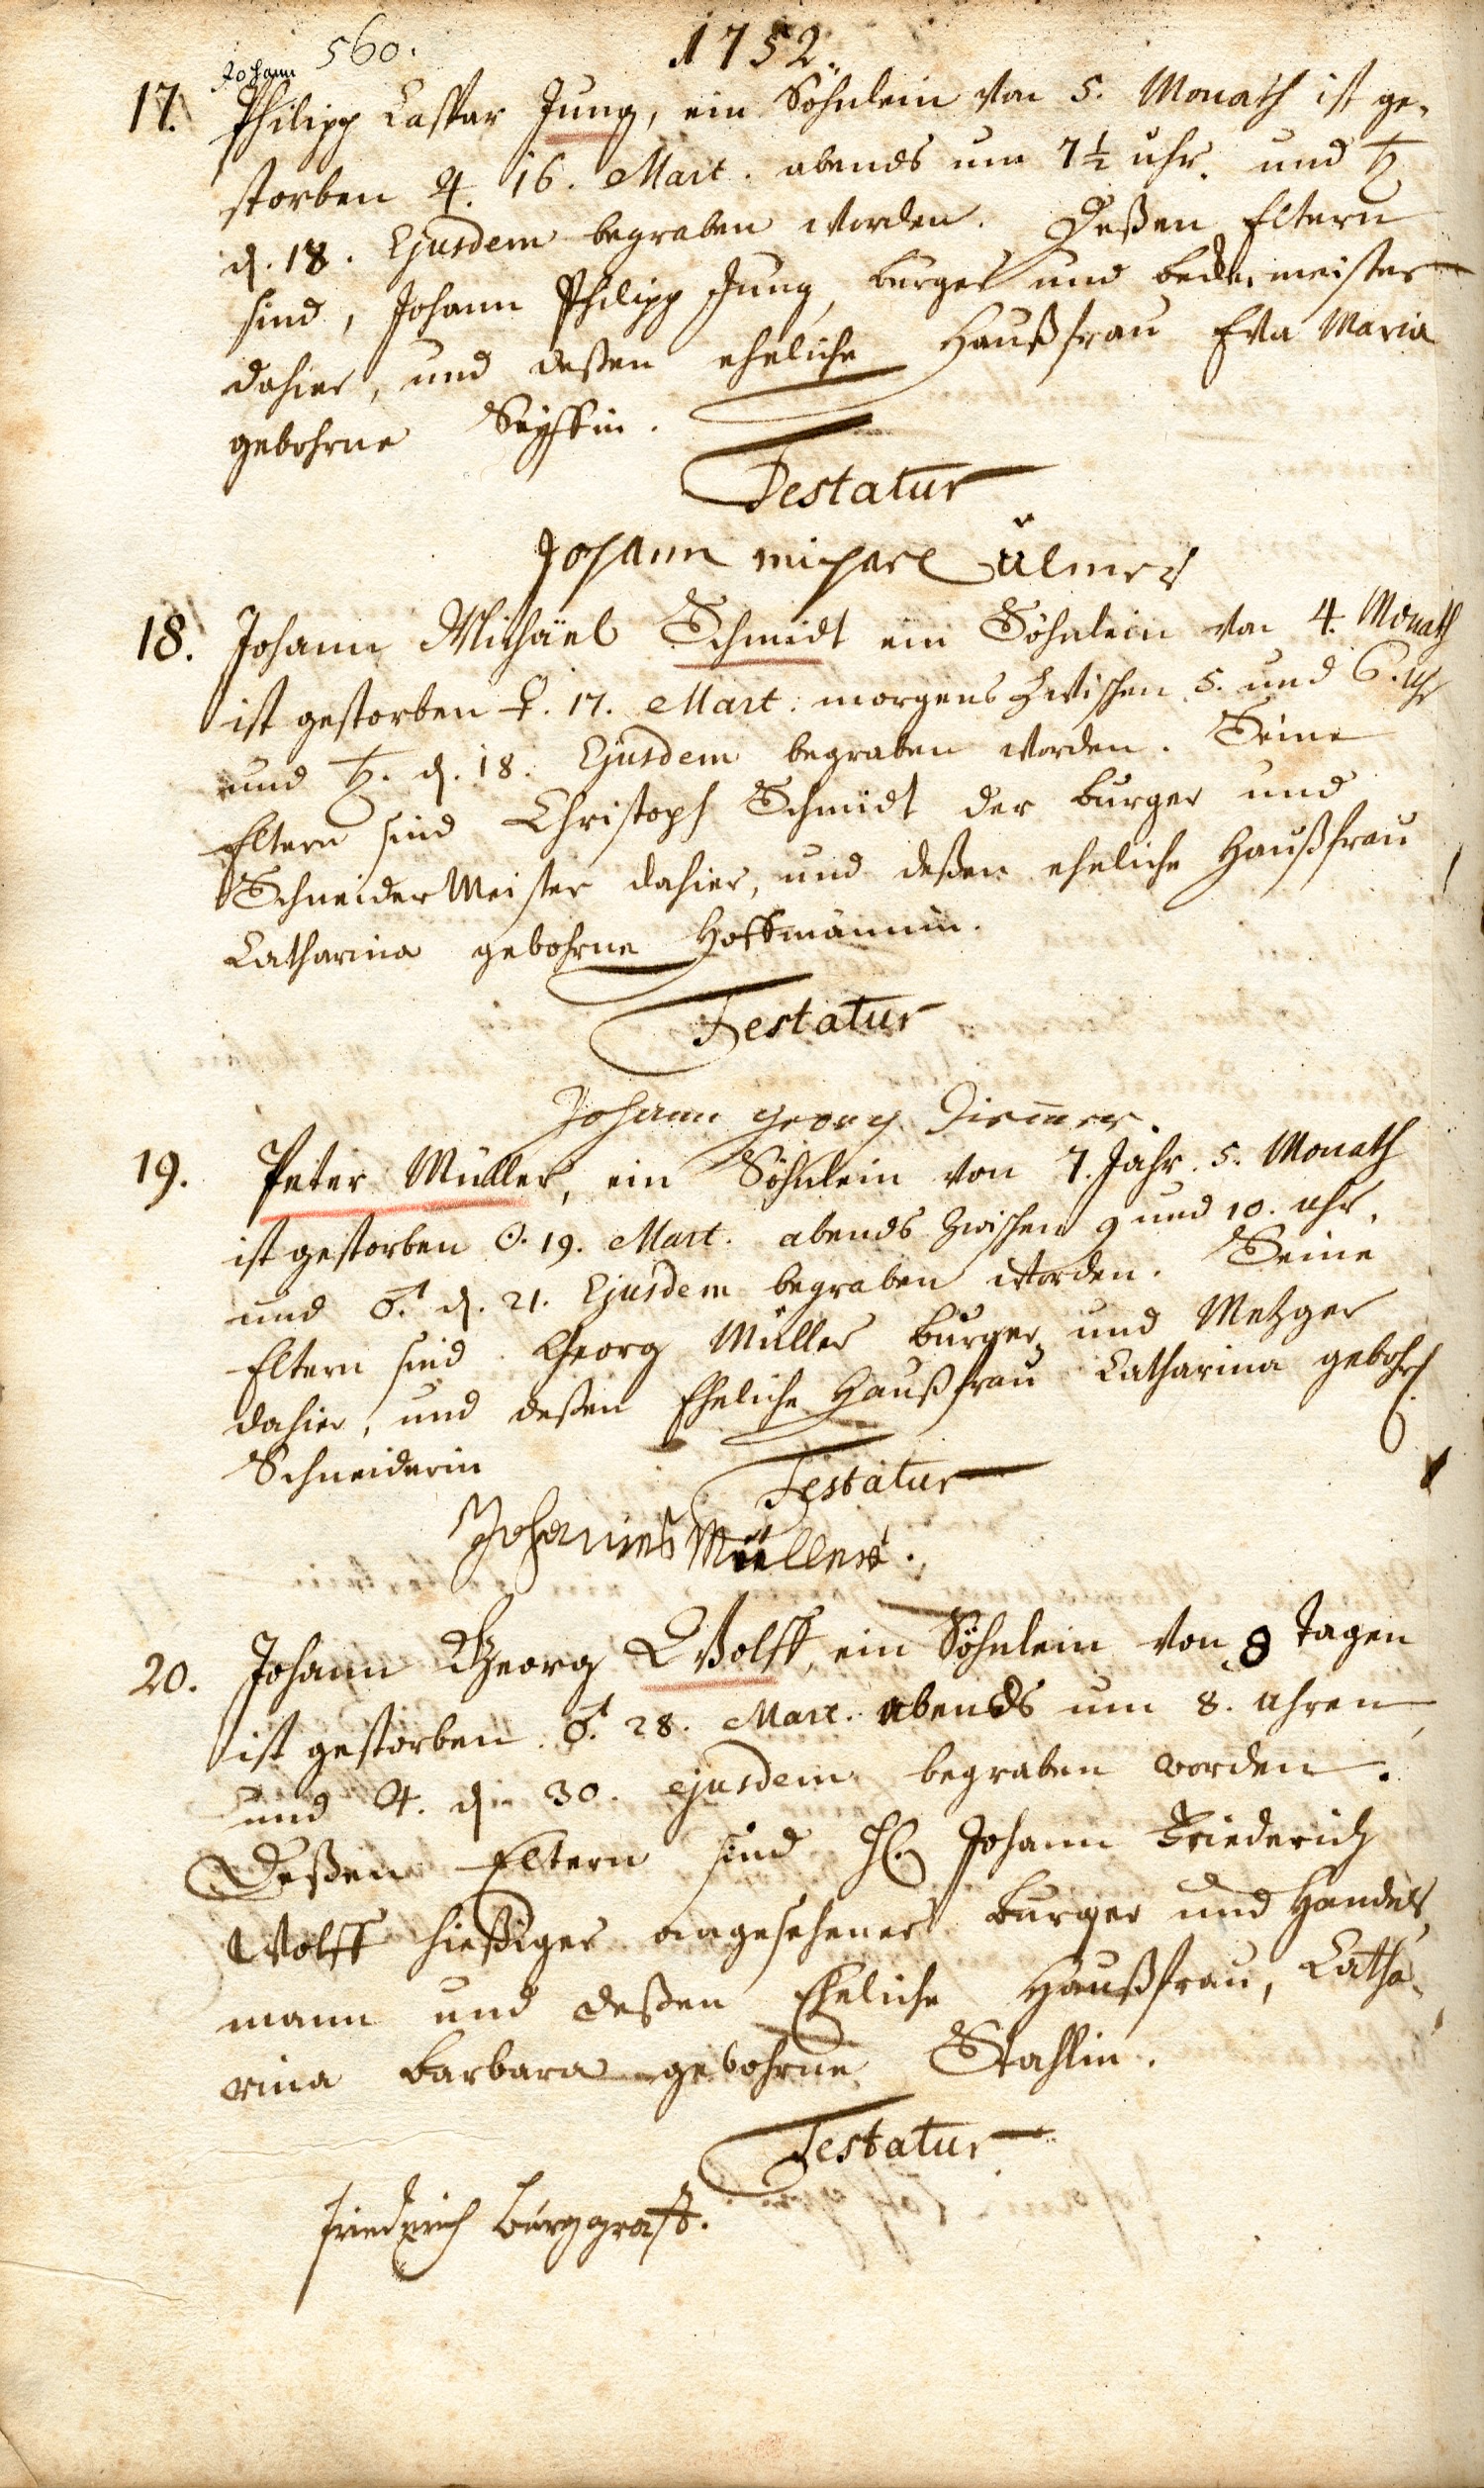 560.
1752.
Johann
17. Philipp Caspar Jung, ein Söhnlein von 5. Monath ist ge-
storben ♃. 16. Mart. abends um 7½ uhr. und ♄
d. 18. Ejusdem begraben worden. Deßen Eltern
sind, Johann Philipp Jung, burger und beckermeister
dahier, und deßen eheliche Haußfrau Eva Maria
gebohrne
Testatur
Johann michael Ulmer
18. Johann Michäel Schmidt ein Söhnlein von 4. Monath
ist gestorben ♀. 17. Mart. morgens zwischen 5. und 6. uhr
und ♄. d. 18. Ejusdem begraben worden. Seine
Eltern sind Christoph Schmidt der burger und
Schneider Meister dahier, und deßen eheliche Haußfrau
Catharina gebohrne Hoffmännin.
Testatur
Johann georg
19. Peter Müller, ein Söhnlein von 7. Jahr. 5. Monath
ist gestorben ☉. 19. Mart. abends zwischen 9 und 10. uhr.
und ♂. d. 21. Ejusdem begraben worden. Seine
Eltern sind Georg Müller burger und Metzger
dahier, und deßen Eheliche Haußfrau Catharina gebohrne
Schneiderin
Testatur
Johannes Müller.
20. Johann Georg Wolff, ein Söhnlein von 8 Tagen
ist gestorben ♂. 28. Mart. abends um 8. uhren
und ♃. d. 30. ejusdem begraben worden.
Deßen Eltern sind H. Johann Friederich
Wolff hießiger angesehener burger und Handels-
mann und deßen Eheliche Haußfrau, Catha-
rina barbara gebohrne Stahlin.
Testatur
Friedrich burggraff.